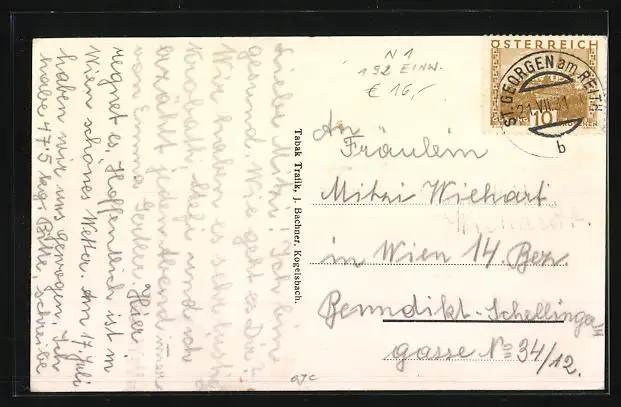 Liebe Mitzi! Ich bin
gesund. Wie geht es Dir?
Wir haben es sehr lustig
und ich
erzählt jeden Abend
von Emma Hier
regnet es. Hoffentlich ist in
Wien schönes Wetter. Am 17 Juli
haben wir uns gewogen. Ich
habe 47'5 kg. Bitte, schreibe
Tabak Trafik, J. Bachner, Kogelsbach.
N 1
192 EINW.
€ 16,-
ÖSTERREICH
10
ST. GEORGEN am REITH
21.VII.31
b
An
Fräulein
Mitzi Wichart
in Wien 14 Bez.
Benndikt-Schellinger
gasse No 34/12.